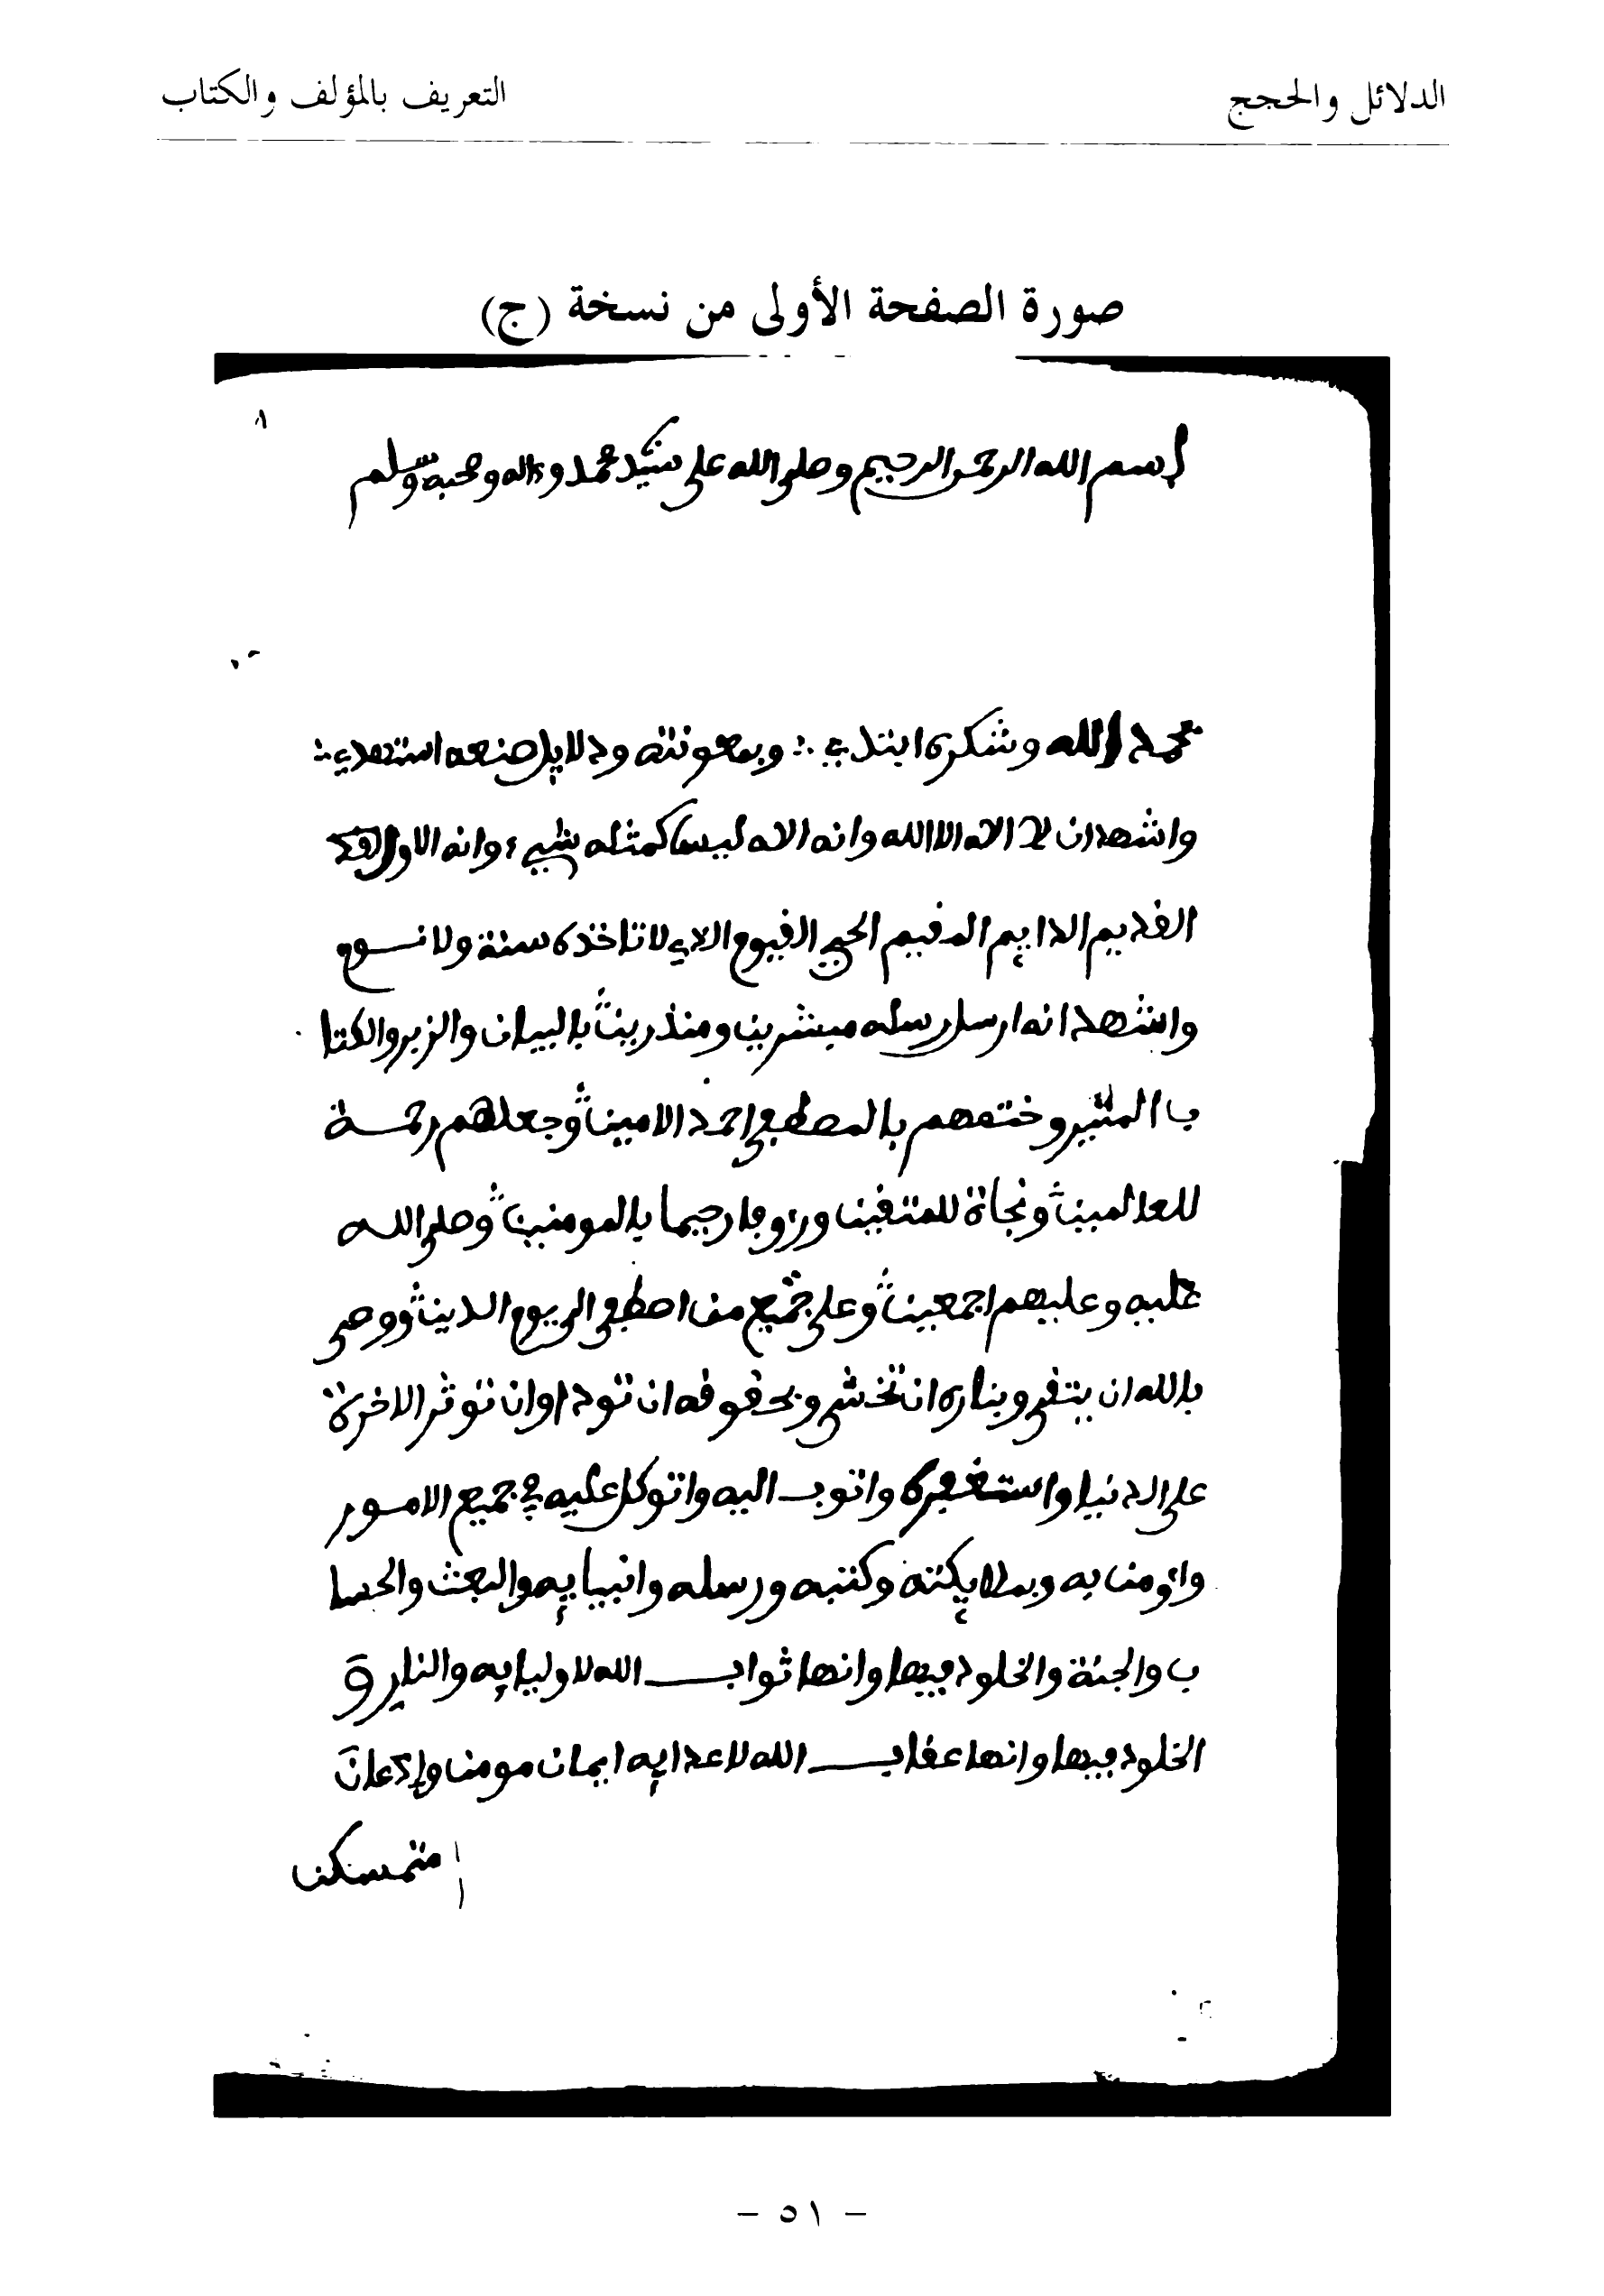 الدلائل والحجج
التعريف بالمؤلف والكتاب
صورة الصفحة الأولى من نسخة (ج)
بسم الله الرحمن الرحيم وصلى الله على سيد محمد وءاله وصحبه وسلم
بحمد الله وشكره ابتدي وبمعونته ودلايل صنعه استهدي
واشهد ان لا اله الا الله وانه الاه ليس كمثله شيء وانه الاول
القديم الدايم المقيم الحي القيوم الذي لا تاخذه سنة ولا نـــوم
واشهد انه ارسل رسله مبشرين ومنذرين بالبيان والزبر والكتا
ب المنير وختمهم بالمصطفى احمد الامين وجعلهم رحمـــة
للعالمين ونجاة للمتقين ورءوفا رحيما بالمومنين وصلى اللـه
عليه وعليهم اجمعين وعلى جميع من اصطفى الى يوم الدين ووصى
بالله ان يتقى وبناره ان تخشى وبحقوقه ان تودا وان توثر الاخرة
على الدنيا واستغفره واتوب اليه واتوكل عليه في جميع الامــور
واومن به وبملايكته وكتبه ورسله وانبيايه والبعث والحسا
ب والجنة والخلود فيها وانها ثواب الله لاوليايه والنار و
الخلود فيها وانها عقاب الله لاعدايه ايمان مومن وإذعان
متمسكن
- ٥١ -